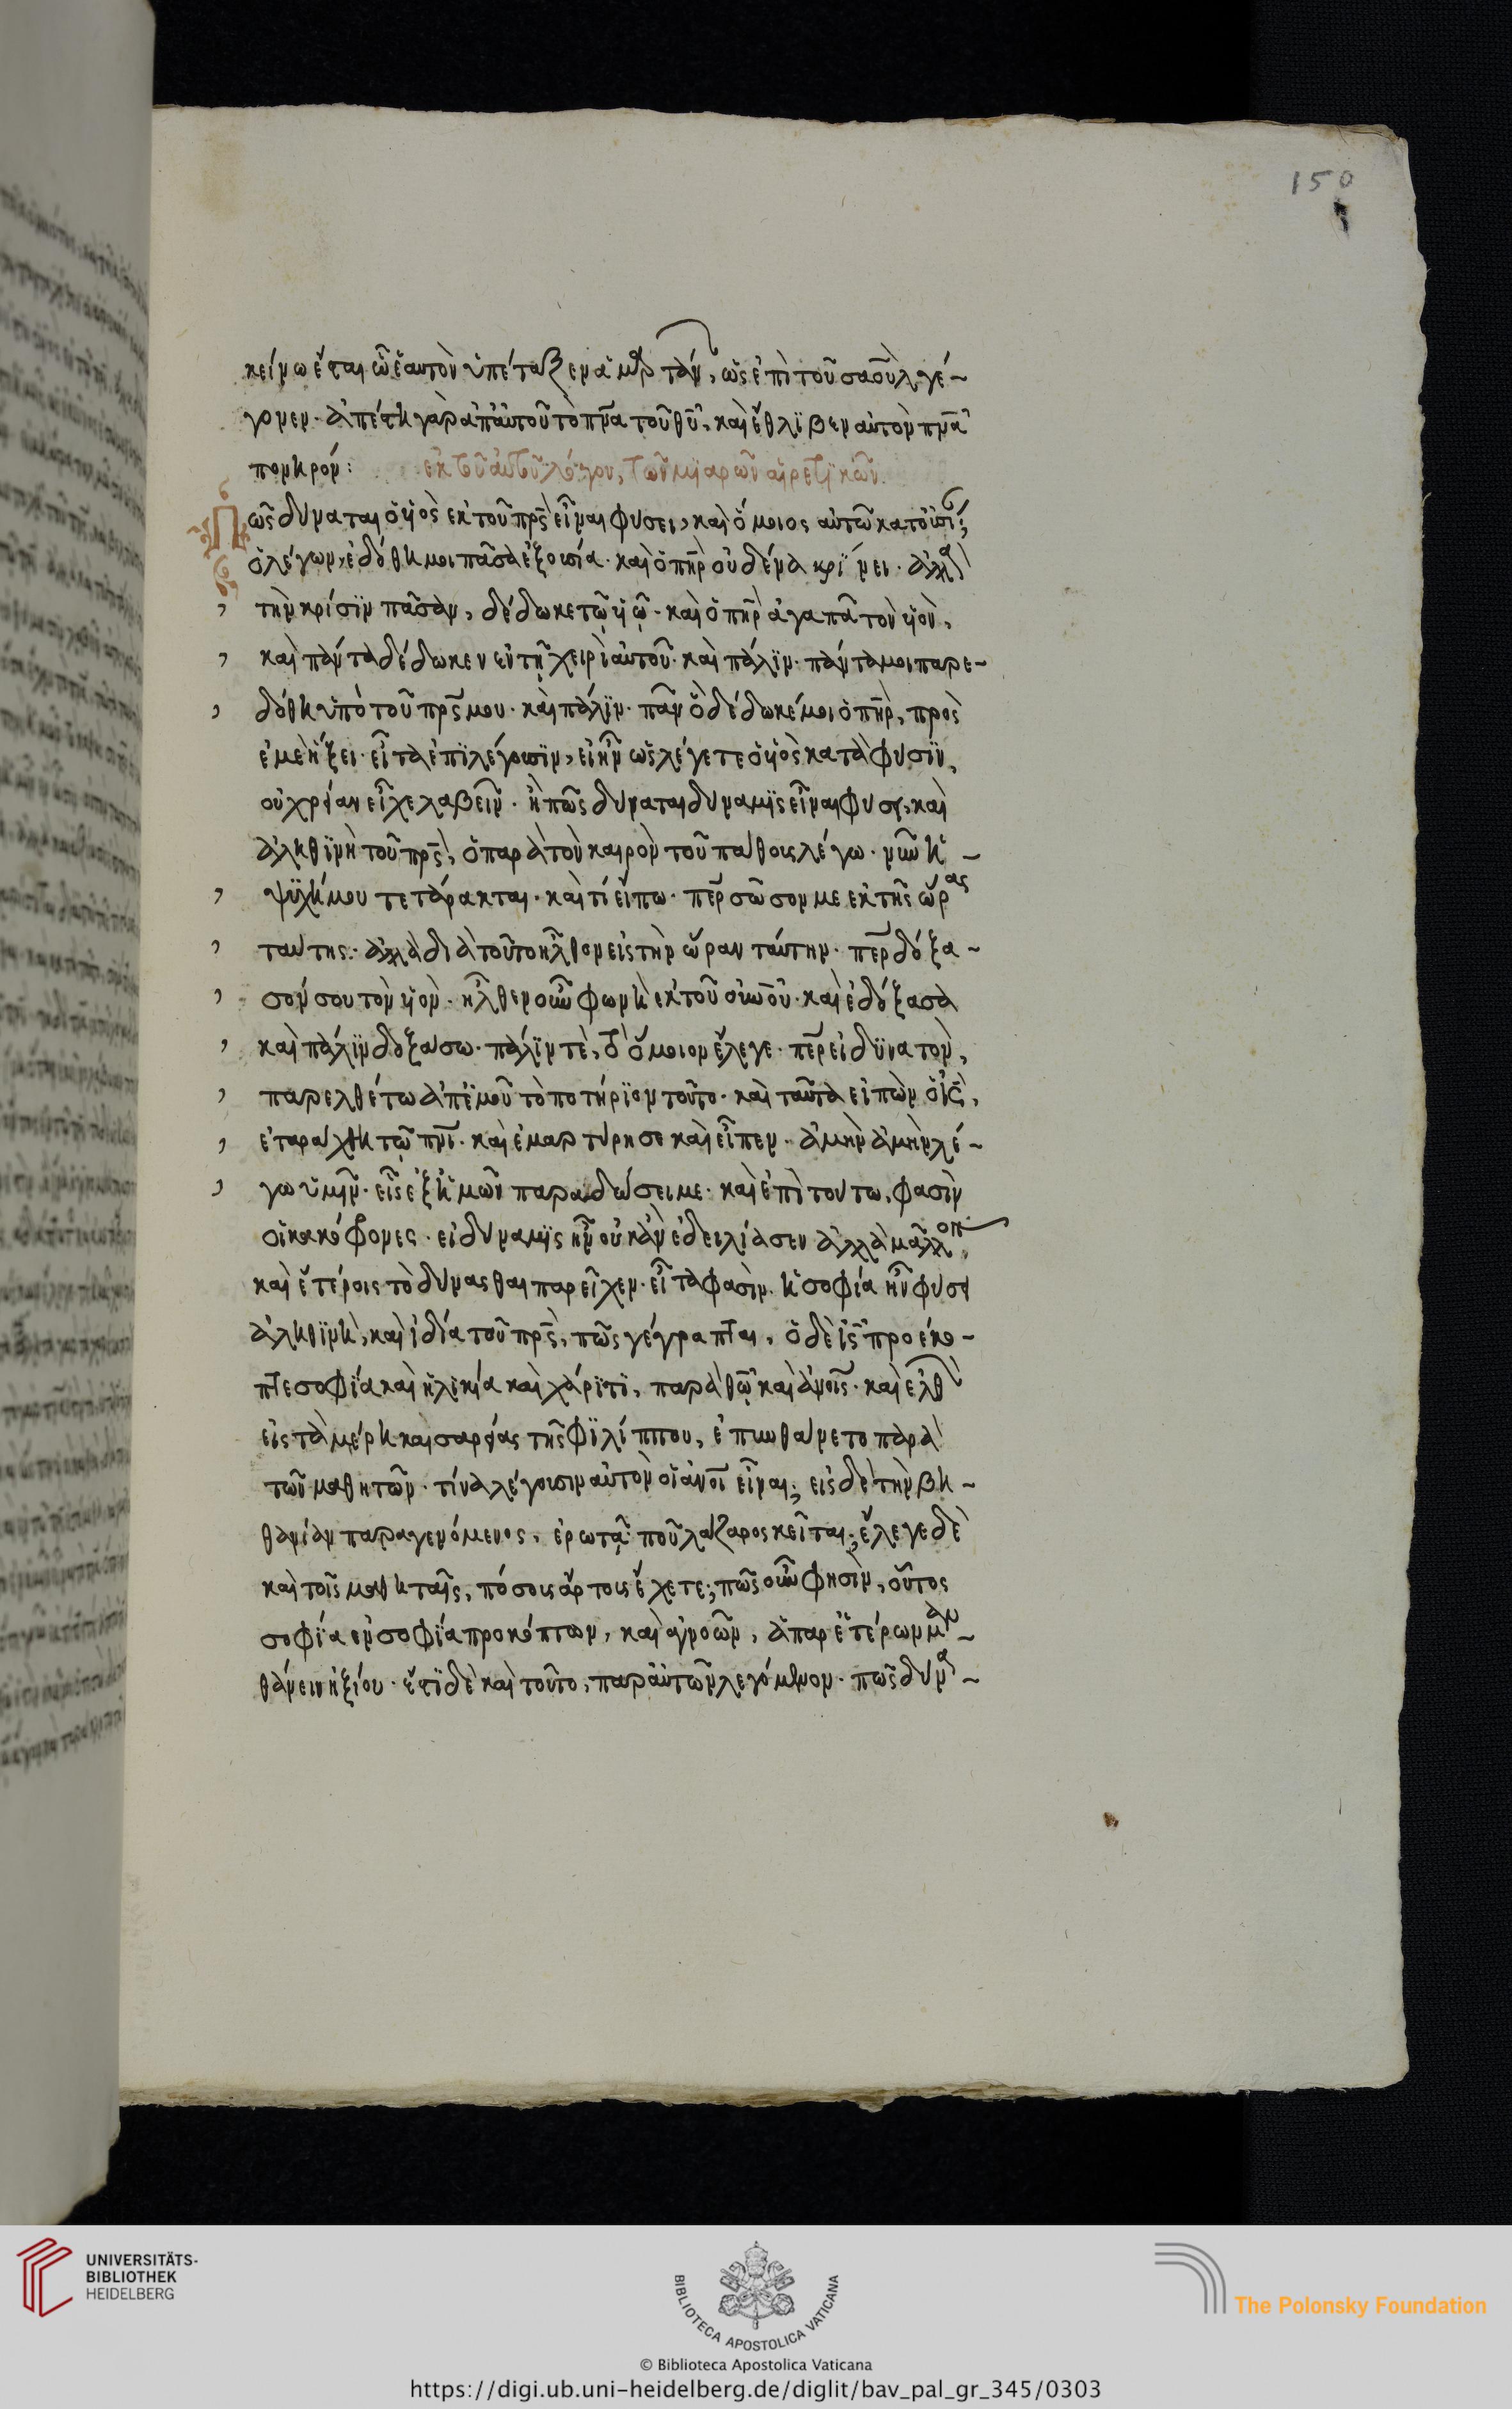 150
κείνω ἔσται ὧ ἑαυτὸν ὑπέταξεν ἁμαρτάν, ὡς ἐπὶ τοῦ σαοὺλ γέ-
γονεν· ἀπέστη γὰρ ἀπ' αὐτοῦ τὸ πνα τοῦ θυ, καὶ ἔθλιβεν αὐτὸν πνα
πονηρόν:  ἐκ τοῦ αὐτοῦ λόγου, τῶν μιαρῶν αἱρετικῶν.
Πῶς δύναται ὁ υἱὸς ἐκ τοῦ πρς εἶναι φύσει, καὶ ὅμοιος αὐτῶ κατ' οὐσί;
ὁ λέγων, ἐδόθη μοι πᾶσα ἐξουσία· καὶ ὁ πηρ οὐδένα κρίνει· ἀλλ
τὴν κρίσιν πᾶσαν, δέδωκε τῷ υἱῷ· καὶ ὁ πηρ ἀγαπᾶ τὸν υἱὸν,
καὶ πάντα δέδωκεν ἐν τῇ χειρὶ αὐτοῦ· καὶ πάλιν· πάντα μοι παρε-
δόθη ὑπὸ τοῦ πρς μου· καὶ πάλιν· πᾶν ὃ δέδωκέ μοι ὁ πηρ, πρὸς
ἐμὲ ἥξει· εἶτα ἐπιλέγουσιν, εἰ ἦν ὡς λέγετε ὁ υἱὸς κατὰ φύσιν,
οὐ χρείαν εἶχε λαβεῖν· ἢ πῶς δύναται δύναμις εἶναι φύσει, καὶ
ἀληθινὴ τοῦ πρς, ὁ παρὰ τὸν καιρὸν τοῦ πάθους λέγω· νῦν ἡ -
ψυχή μου τετάρακται· καὶ τί εἴπω· περ σῶσόν με ἐκ τῆς ὥρας
ταύτης· ἀλλὰ διὰ τοῦτο ἦλθον εἰς τὴν ὥραν ταύτην· περ δόξα-
σόν σου τὸν υἱόν· ἦλθεν οὖν φωνὴ ἐκ τοῦ οὐνοῦ· καὶ ἐδόξασα
καὶ πάλιν δοξάσω· πάλιν τὲ, τὸ ὅμοιον ἔλεγε· περ εἰ δυνατὸν,
παρελθέτω ἀπ' ἐμοῦ τὸ ποτήριον τοῦτο· καὶ ταῦτα εἰπὼν ὁ ις,
ἐταράχθη τῷ πνι· καὶ ἐμαρτύρησε καὶ εἶπεν· ἀμὴν ἀμὴν λέ-
γω ὑμῖν· εἷς ἐξ ὑμῶν παραδώσει με· καὶ ἐπὶ τούτω, φασὶν
οἱ κακόφρονες· εἰ δύναμις ἦν οὐκ ἂν ἐδειλίασεν ἀλλὰ μᾶλλον
καὶ ἑτέροις τὸ δύνασθαι παρεῖχεν· εἶτα φασὶν· ἡ σοφία ἦν φύσει
ἀληθινὴ, καὶ ἰδία τοῦ πρς, πῶς γέγραπται, ὁ δὲ ις προέκο-
πτε σοφία καὶ ἡλικία καὶ χάριτι, παρὰ θῷ καὶ ἀνοις· καὶ ἐλθ
εἰς τὰ μέρη καισαρείας τῆς φιλίππου, ἐπυνθάνετο παρὰ
τῶν μαθητῶν· τίνα λέγουσιν αὐτὸν οἱ ἀνοι εἶναι; εἰς δὲ τὴν βη-
θανίαν παραγενόμενος, ἐρωτᾷ· ποῦ λάζαρος κεῖται; ἔλεγε δὲ
καὶ τοῖς μαθηταῖς, πόσους ἄρτους ἔχετε; πῶς οὖν φησὶν, οὗτος
σοφία ἐν σοφία προκόπτων, καὶ ἀγνοῶν, ἃ παρ' ἑτέρων μαν-
θάνειν ἠξίου· ἔτι δὲ καὶ τοῦτο, παρ' αὐτῶν λεγόμενον· πῶς δύνα-
UNIVERSITÄTS-
BIBLIOTHEK
HEIDELBERG
BIBLIOTECA APOSTOLICA VATICANA
The Polonsky Foundation
© Biblioteca Apostolica Vaticana
https://digi.ub.uni-heidelberg.de/diglit/bav_pal_gr_345/0303